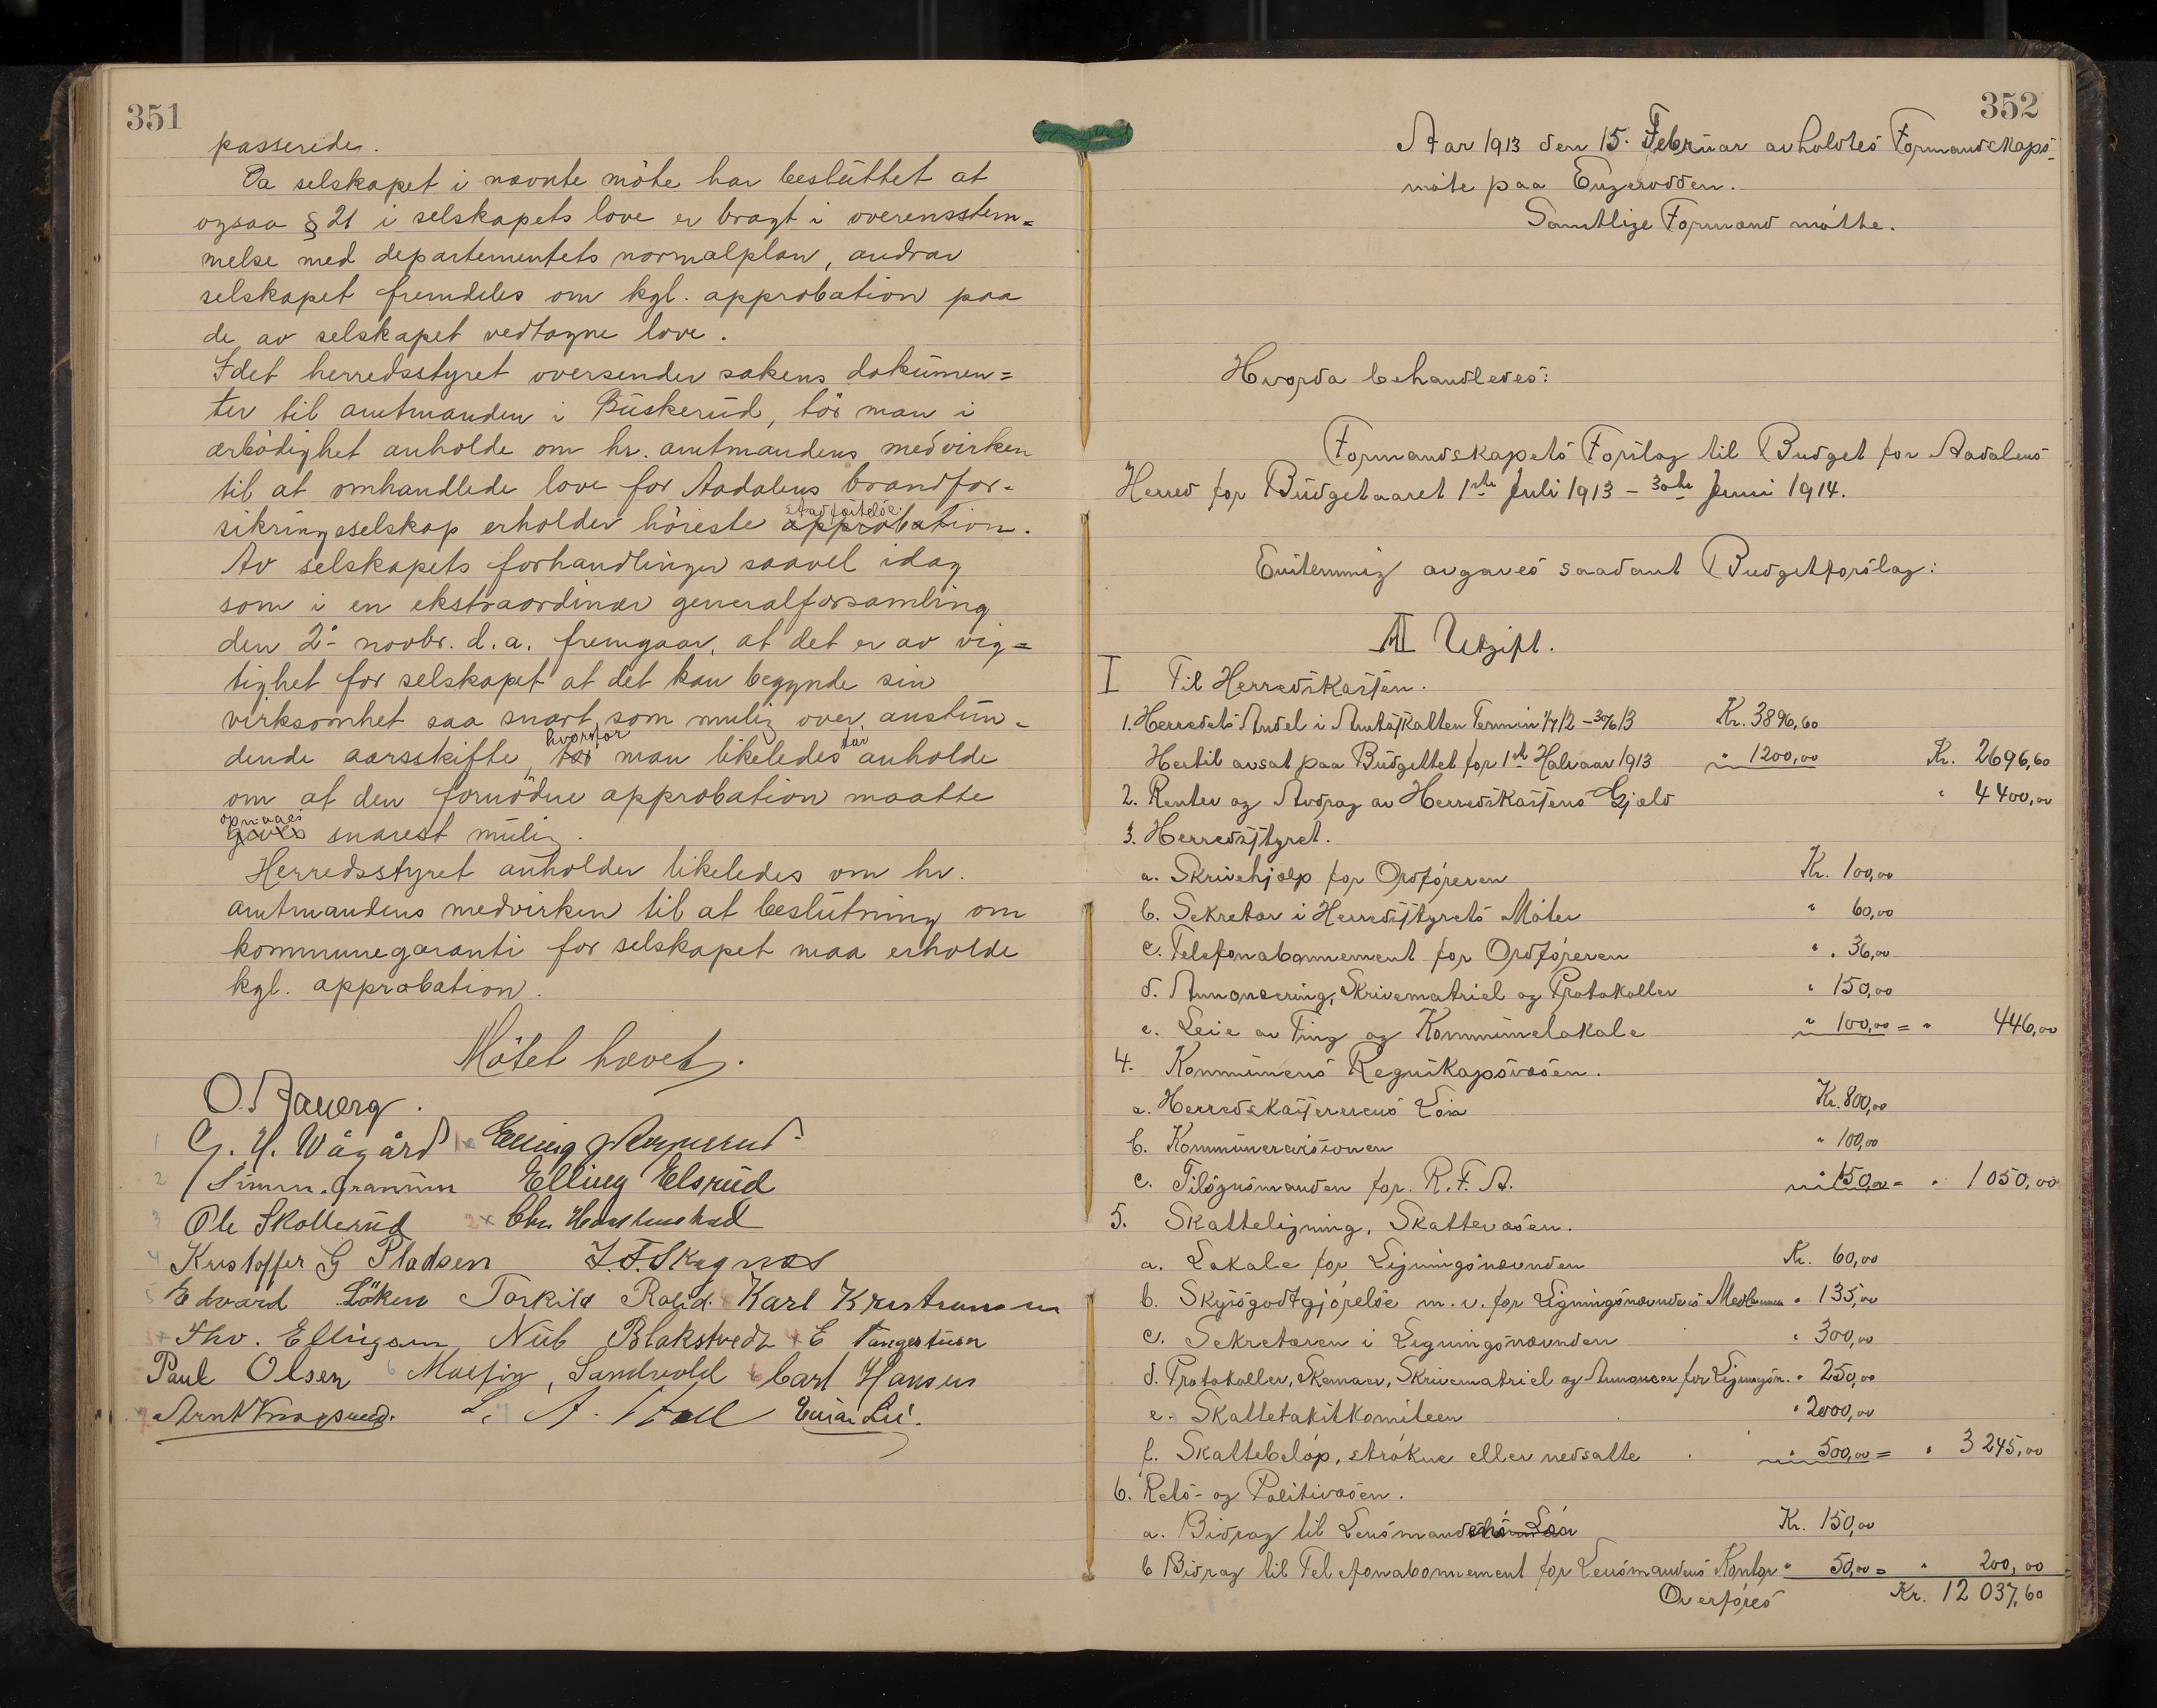 351
passerede.
Da selskapet i nævnte möte har besluttet at
ogsaa § 21 i selskapets love er bragt i overensstem=
melse med departementets normalplan, andrar
selskapet fremdeles om kgl. approbation paa
de av selskapet vedtagne love.
Idet herredsstyret oversender sakens dokumen=
ter til amtmanden i Buskerud, tör man i
ærbödighet anholde om hr. amtmandens medvirken
til at omhandlede love for Aadalens brandfor-
stadfæstelse
sikringsselskap erholder höieste approbation.
Av selskapets forhandlinger saavel idag
som i en ekstraordinær generalforsamling
den 2. novbr. d.a. fremgaar, at det er av vig=
tighet for selskapet at det kan begynde sin
virksomhet saa snart som mulig over anstun-
hvorfor tör
dende aarsskifte, tör man likeledes anholde
om at den fornödne approbation maatte
opnaaes
gives snarest mulig.
Herredsstyret anholder likeledes om hr.
amtmandens medvirken til at beslutning om
kommunegaranti for selskapet maa erholde
kgl. approbation.
Mötet hævet.
G. H. Vågård Elling
Simen Granum Elling Elsrud
Ole Skollerud Chr.
Kristoffer G Pladsen
Edvard Löken Torkild Karl Kristiansen
Thv. Ellingsen Nub Blakstvedt E Tangestuen
Paul Olsen Sandvold Carl Hansen
Einar Lie.
352
Aar 1913 den 15. Februar avholdtes Formandskaps-
møte paa Engerodden.
Samtlige Formænd møtte.
Hvorda behandledes:
Formandskapets Forslag til Budget for Aadalens
Herred for Budgetaaret 1ste Juli 1913 - 30te Juni 1914.
Enstemmig avgaves saadant Budgetforslag:
A Utgift.
I Til Herredskassen.
1. Herredets Andel i Amtsskatten Termin 1/7 12 - 30/6 13 Kr. 3896,60
Hertil avsat paa Budgettet for 1ste Halvaar 1913 " 1200,00 Kr. 2696,60
2. Renter og Avdrag av Herredskassens Gjæld " 4400,00
3. Herredsstyret.
a. Skrivehjælp for Ordføreren Kr. 100,00
b. Sekretær i Herredsstyrets Møter " 60,00
c. Telefonabonnement for Ordføreren " 36,00
d. Annoncering, Skrivematriel og Protokoller " 150,00
e. Leie av Ting og Kommunelokale " 100,00 = " 446,00
4. Kommunens Regnskapsvæsen.
a. Herredskassererens Løn Kr. 800,00
b. Kommunerevisionen " 100,00
c. Tilsynsmanden for R. F. A. " 150,00 = " 1050,00
5. Skatteligning, Skattevæsen.
a. Lokale for Ligningsnævnden Kr. 60,00
b. Skyssgodtgjørelse m. v. for Ligningsnævndens Medlemmer " 135,00
c. Sekretæren i Ligningsnævnden " 300,00
d. Protokoller, Skemaer, Skrivematriel og Annoncer for Ligningsn. " 250,00
e. Skattetakstkomiteen " 2000,00
f. Skattebeløp, strøkne eller nedsatte " 500,00 = " 3245,00
6. Rets- og Politivæsen.
a. Bidrag til Lensmands Kr. 150,00
b Bidrag til Telefonabonnement for Lensmandens Kontor " 50,00 = " 200,00
Overføres Kr. 12037,60